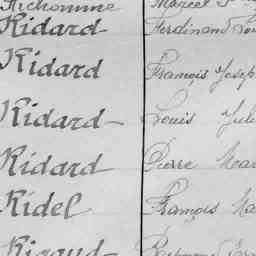 Richomme Marcel
Ridard Ferdinand
Ridard François Josep
Ridard Louis Jul
Ridard Pierre
Ridel François
Rigaud